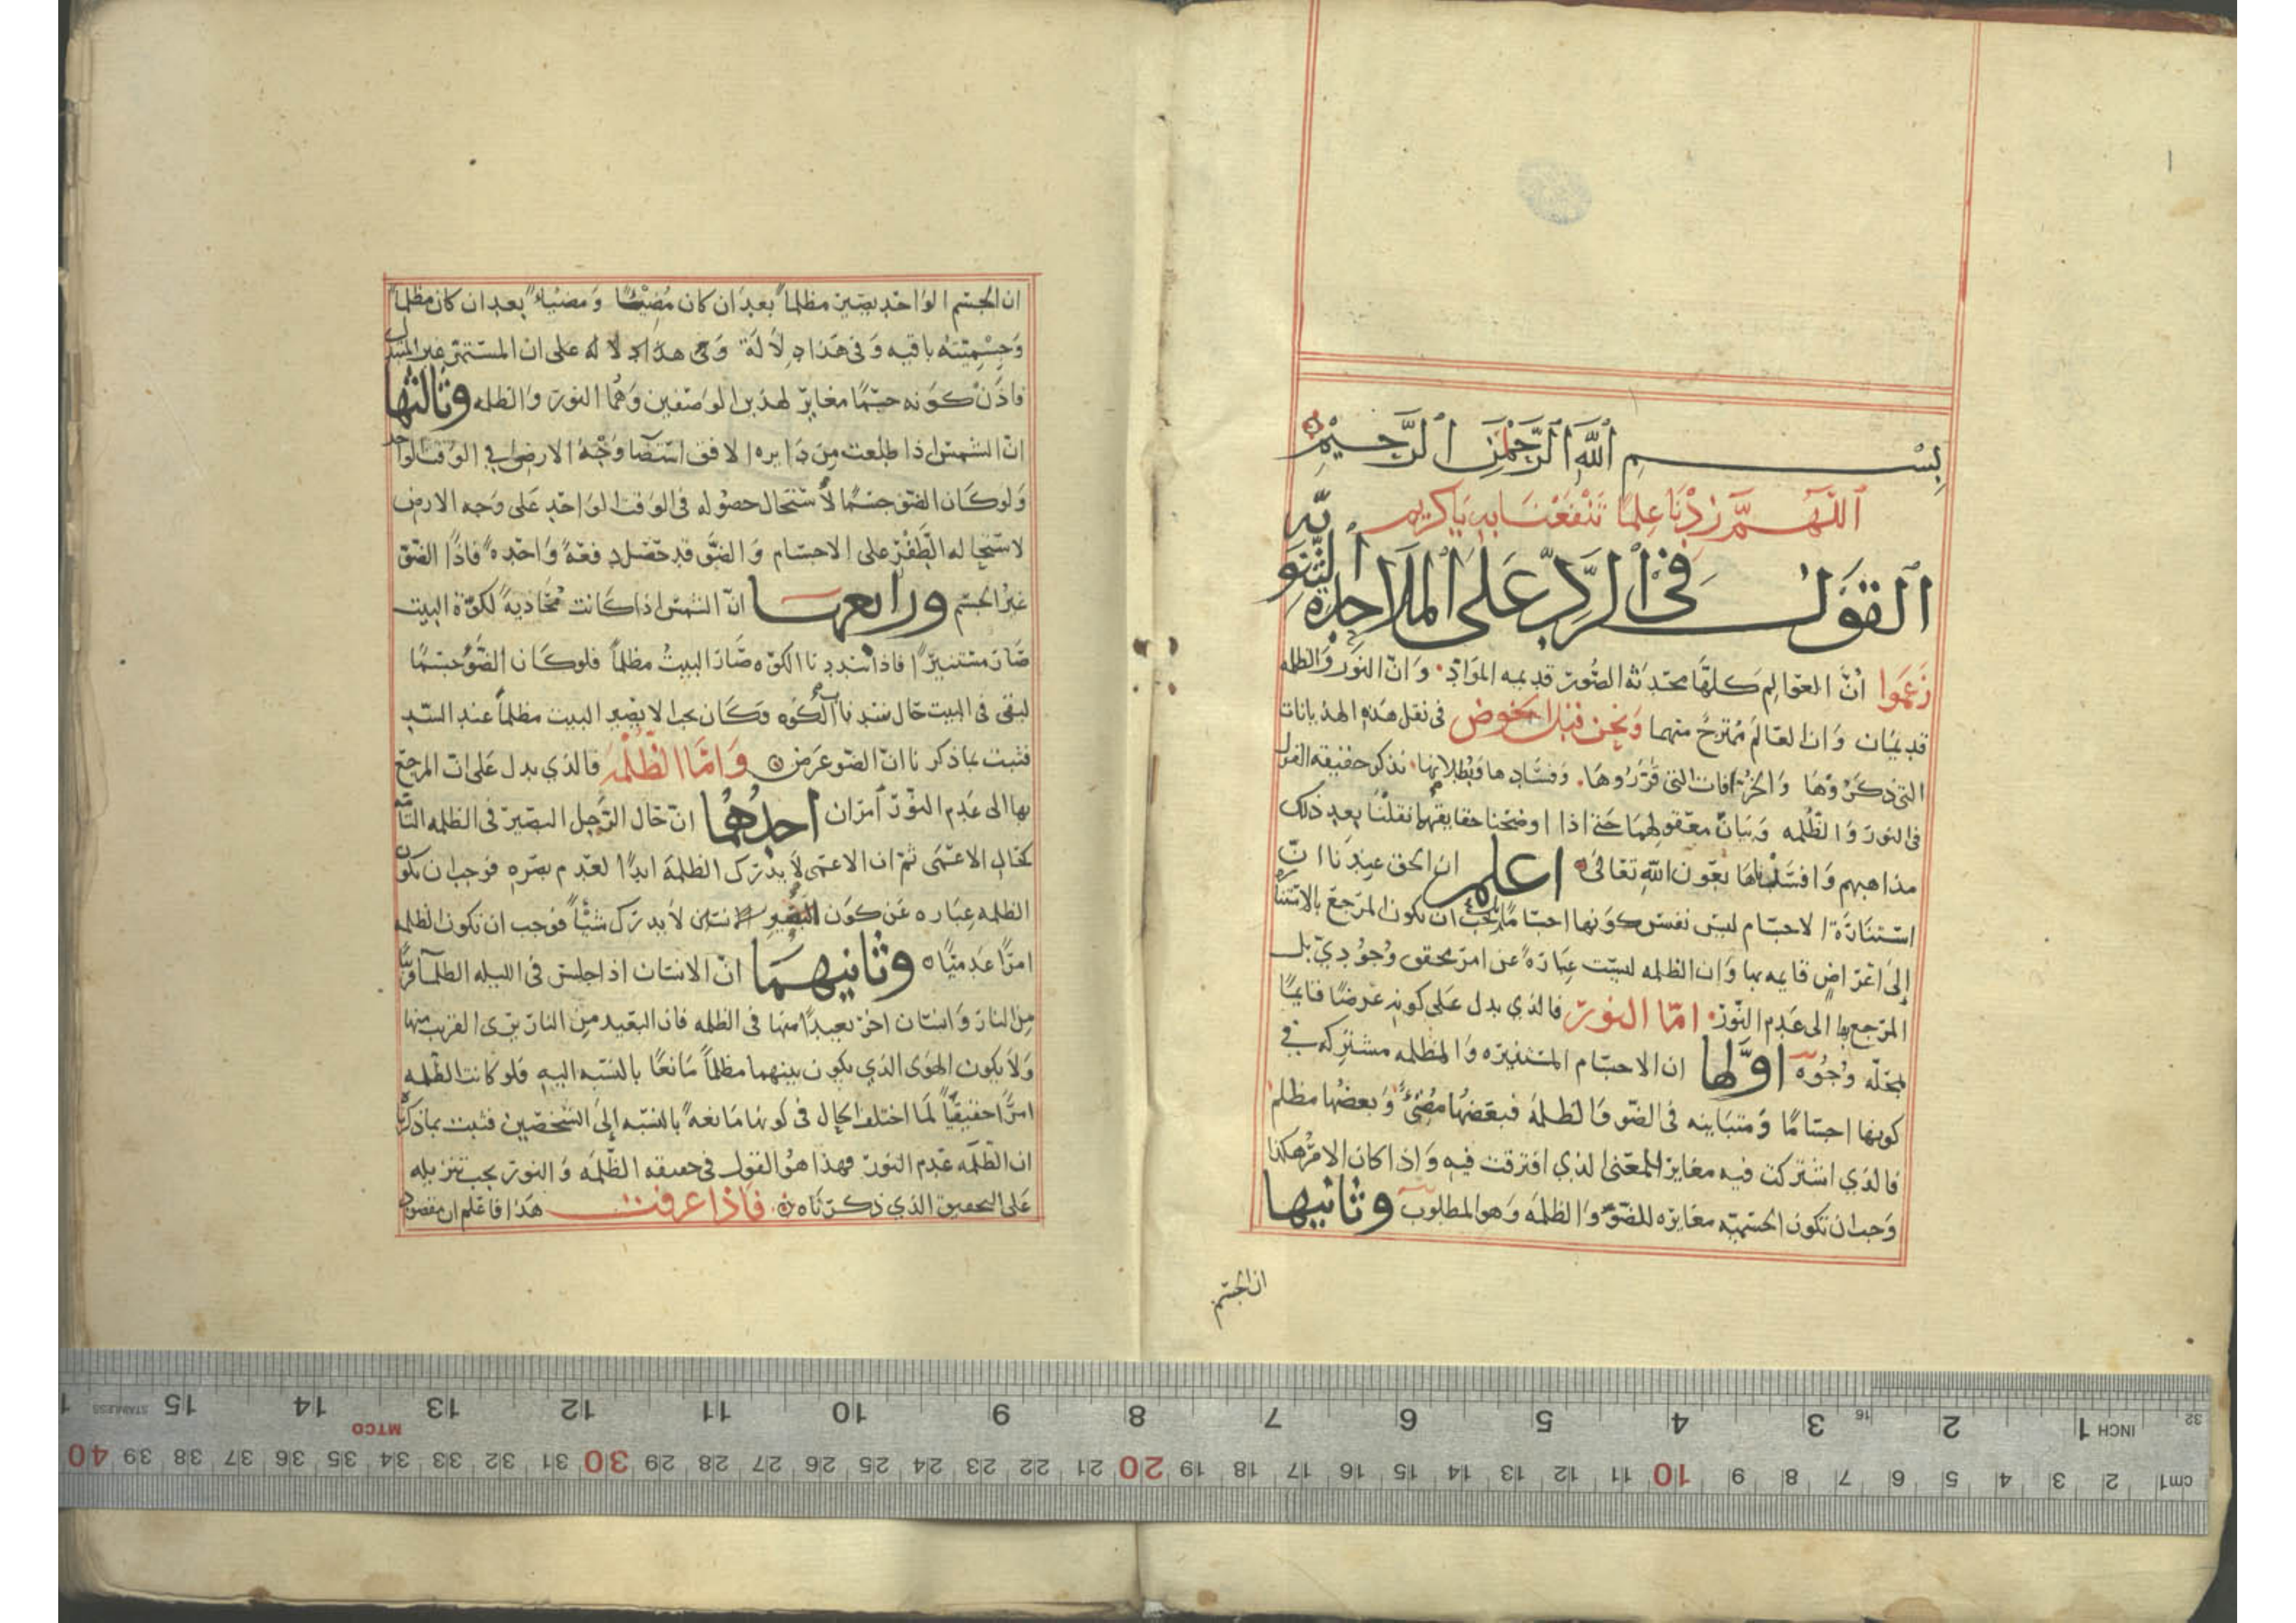 بِسْمِ اللَّهِ الرَّحْمَنِ الرَّحِيمِ
اللَّهُمَّ زِدْنَا عِلْمًا تَنْفَعْنَا بِهِ يَا كَرِيم
القول في الرد على الملاحده الثنويه
زعموا ان العوالم كلها محدثه الصور قديمه المواد وان النور والظلمه
قديمان وان العالم ممتزج منهما ونحن قبل الخوض في نقل هذه الهذيانات
التي ذكروها والخرافات التي قرروها وفسادها وبطلانها نذكر حقيقه القول
في النور والظلمه وبيان معقولهما حتى اذا اوضحنا حقايقهما نقلنا بعد ذلك
مذاهبهم وافسدناها بعون الله تعالى اعلم ان الحق عندنا ان
استنارة الاجسام ليس نفس كونها اجساما بل يجب ان يكون المرجع بالاستناره
إلى اعراض قايمه بها وان الظلمه ليست عبارة عن امر محقق وجودي بل
المرجع بها الى عدم النور اما النور فالذي يدل على كونه عرضا قايما
بمحله وجوه اولها ان الاجسام المستنيره والمظلمه مشتركه في
كونها اجساما ومتباينه في الضو والظلمه فبعضها مضئ وبعضها مظلم
فالذي اشتركت فيه مغاير للمعنى الذي افترقت فيه واذا كان الامر هكذا
وجب ان تكون الجسميه مغايره للضو والظلمه وهو المطلوب وثانيها
ان الجسم
ان الجسم الواحد يصير مظلما بعد ان كان مضيئا ومضيا بعد ان كان مظلما
وجسميته باقيه وفي هذا دلالة وفي هذا دلاله على ان المستمر غير المتبدل
فاذن كونه جسما مغاير لهذين الوصفين وهما النور والظلمه وثالثها
ان الشمس اذا طلعت من دايره الافق استضا وجه الارض في الوقت الواحد
ولو كان الضو جسما لاستحال حصوله في الوقت الواحد على وجه الارض
لاستحاله الطفر على الاجسام والضو قد حصل دفعة واحده فاذا الضو
غير الجسم ورابعها ان الشمس اذا كانت محاذية لكوة البيت
صار مستنيرا فاذا سددنا الكوه صار البيت مظلما فلو كان الضو جسما
لبقي في البيت حال سدنا الكوه وكان يجب الا يصير البيت مظلما عند السد
فثبت بما ذكرنا ان الضو عرض واما الظلمه فالذي يدل على ان المرجع
بها الى عدم النور امران احدهما ان حال الرجل البصير في الظلمه التامه
كحال الاعمى ثم ان الاعمى لا يدرك الظلمة ابدا لعدم بصره فوجب ان تكون
الظلمه عباره عن كون الانسان لا يدرك شيئا فوجب ان تكون الظلمه
امرا عدميا وثانيهما ان الانسان اذا جلس في الليله الظلما قريبا
من النار وانسان اخر بعيدا منها في الظلمه فان البعيد من النار يرى القريب منها
ولا يكون الهوى الذي يكون بينهما مظلما مانعا بالنسبه اليه فلو كانت الظلمه
امرا حقيقيا لما اختلف الحال في كونها مانعه بالنسبه إلى الشخصين فثبت بما ذكرنا
ان الظلمه عدم النور فهذا هو القول في حقيقه الظلمه والنور يجب تنزيله
على التحقيق الذي ذكرناه فاذا عرفت هذا فاعلم ان مقصود